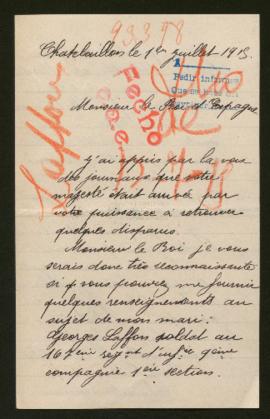 93378
Chatelaillon le 1er juillet 1915.
1
Pedir informes
Que se
Laffon
Fecho
Monsieur le Roi d'Espagne
j'ai appris par la voix
des journaux que votre
majesté était arrivée par
votre puissance à retrouver
quelques disparus.
Monsieur le Roi je vous
serais donc très reconnaissante
si vous pouvez me fournir
quelques renseignements au
sujet de mon mari:
Georges Laffon soldat au
compagnie 1ère section.